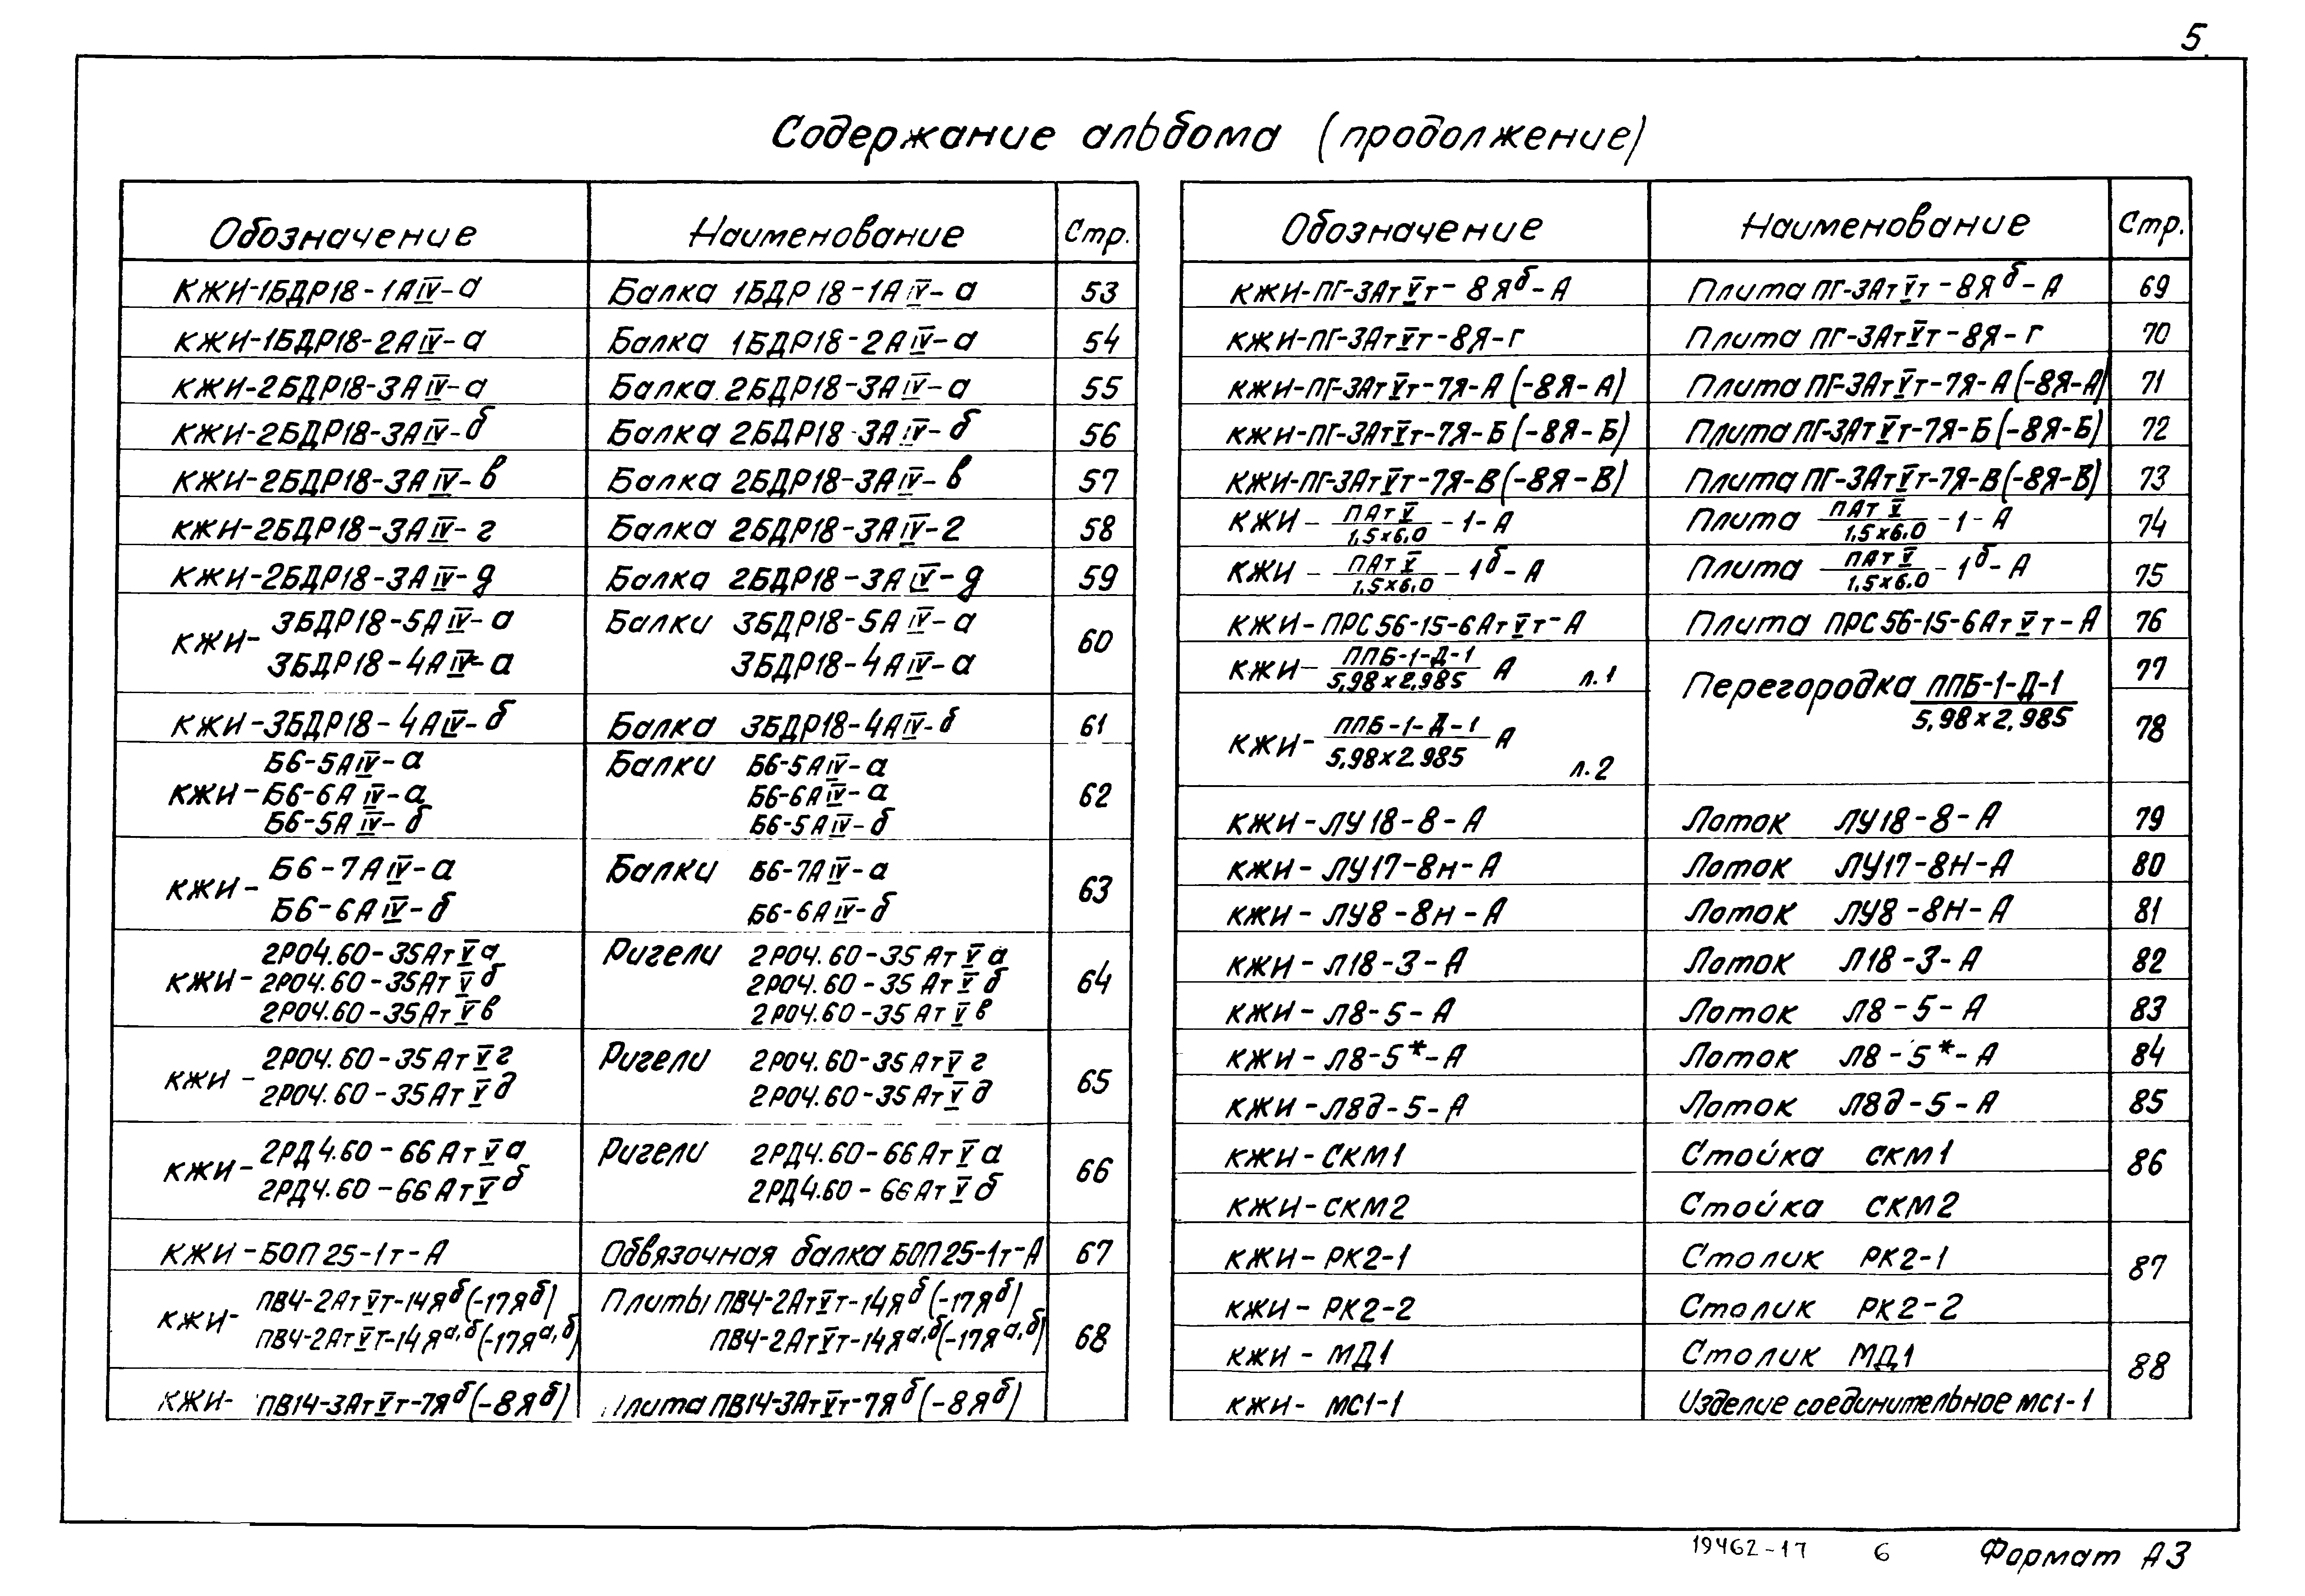 5
Содержание альбома (продолжение)
Обозначение Наименование Стр.
КЖИ-1БДР18-1АIV-а Балка 1БДР18-1АIV-а 53
КЖИ-1БДР18-2АIV-а Балка 1БДР18-2АIV-а 54
КЖИ-2БДР18-3АIV-а Балка 2БДР18-3АIV-а 55
КЖИ-2БДР18-3АIV-б Балка 2БДР18-3АIV-б 56
КЖИ-2БДР18-3АIV-в Балка 2БДР18-3АIV-в 57
КЖИ-2БДР18-3АIV-г Балка 2БДР18-3АIV-г 58
КЖИ-2БДР18-3АIV-д Балка 2БДР18-3АIV-д 59
КЖИ- 3БДР18-5АIV-а Балки 3БДР18-5АIV-а 60
3БДР18-4АIV-а 3БДР18-4АIV-а
КЖИ-3БДР18-4АIV-б Балка 3БДР18-4АIV-б 61
Б6-5АIV-а Балки Б6-5АIV-а
КЖИ-Б6-6АIV-а Б6-6АIV-а 62
Б6-5АIV-б Б6-5АIV-б
КЖИ- Б6-7АIV-а Балки Б6-7АIV-а 63
Б6-6АIV-б Б6-6АIV-б
2РО4.60-35АтVа Ригели 2РО4.60-35АтVа
КЖИ-2РО4.60-35АтVб 2РО4.60-35АтVб 64
2РО4.60-35АтVв 2РО4.60-35АтVв
КЖИ- 2РО4.60-35АтVг Ригели 2РО4.60-35АтVг 65
2РО4.60-35АтVд 2РО4.60-35АтVд
КЖИ- 2РД4.60-66АтVа Ригели 2РД4.60-66АтVа 66
2РД4.60-66АтVб 2РД4.60-66АтVб
КЖИ-БОП25-1т-А Обвязочная балка БОП25-1т-А 67
КЖИ- ПВ4-2АтVт-14Яб(-17Яб) Плиты ПВ4-2АтVт-14Яб(-17Яб) 68
ПВ4-2АтVт-14Яа,б(-17Яа,б) ПВ4-2АтVт-14Яа,б(-17Яа,б)
КЖИ- ПВ14-3АтVт-7Яб(-8Яб) Плита ПВ14-3АтVт-7Яб(-8Яб)
Обозначение Наименование Стр.
КЖИ-ПГ-3АтVт-8Яб-А Плита ПГ-3АтVт-8Яб-А 69
КЖИ-ПГ-3АтVт-8Я-г Плита ПГ-3АтVт-8Я-г 70
КЖИ-ПГ-3АтVт-7Я-А(-8Я-А) Плита ПГ-3АтVт-7Я-А(-8Я-А) 71
КЖИ-ПГ-3АтVт-7Я-Б(-8Я-Б) Плита ПГ-3АтVт-7Я-Б(-8Я-Б) 72
КЖИ-ПГ-3АтVт-7Я-В(-8Я-В) Плита ПГ-3АтVт-7Я-В(-8Я-В) 73
КЖИ- ПАтV/1,5х6,0 -1-А Плита ПАтV/1,5х6,0 -1-А 74
КЖИ- ПАтV/1,5х6,0 -1б-А Плита ПАтV/1,5х6,0 -1б-А 75
КЖИ-ПРС56-15-6АтVт-А Плита ПРС56-15-6АтVт-А 76
КЖИ- ППБ-1-Д-1/5,98х2,985 А л.1 Перегородка ППБ-1-Д-1/5,98х2,985 77
КЖИ- ППБ-1-Д-1/5,98х2.985 А л.2 78
КЖИ-ЛУ18-8-А Лоток ЛУ18-8-А 79
КЖИ-ЛУ17-8н-А Лоток ЛУ17-8Н-А 80
КЖИ-ЛУ8-8н-А Лоток ЛУ8-8Н-А 81
КЖИ-Л18-3-А Лоток Л18-3-А 82
КЖИ-Л8-5-А Лоток Л8-5-А 83
КЖИ-Л8-5*-А Лоток Л8-5*-А 84
КЖИ-Л8д-5-А Лоток Л8д-5-А 85
КЖИ-СКМ1 Стойка СКМ1 86
КЖИ-СКМ2 Стойка СКМ2
КЖИ-РК2-1 Столик РК2-1 87
КЖИ-РК2-2 Столик РК2-2
КЖИ-МД1 Столик МД1 88
КЖИ- МС1-1 Изделие соединительное МС1-1
19462-17 6 Формат А3